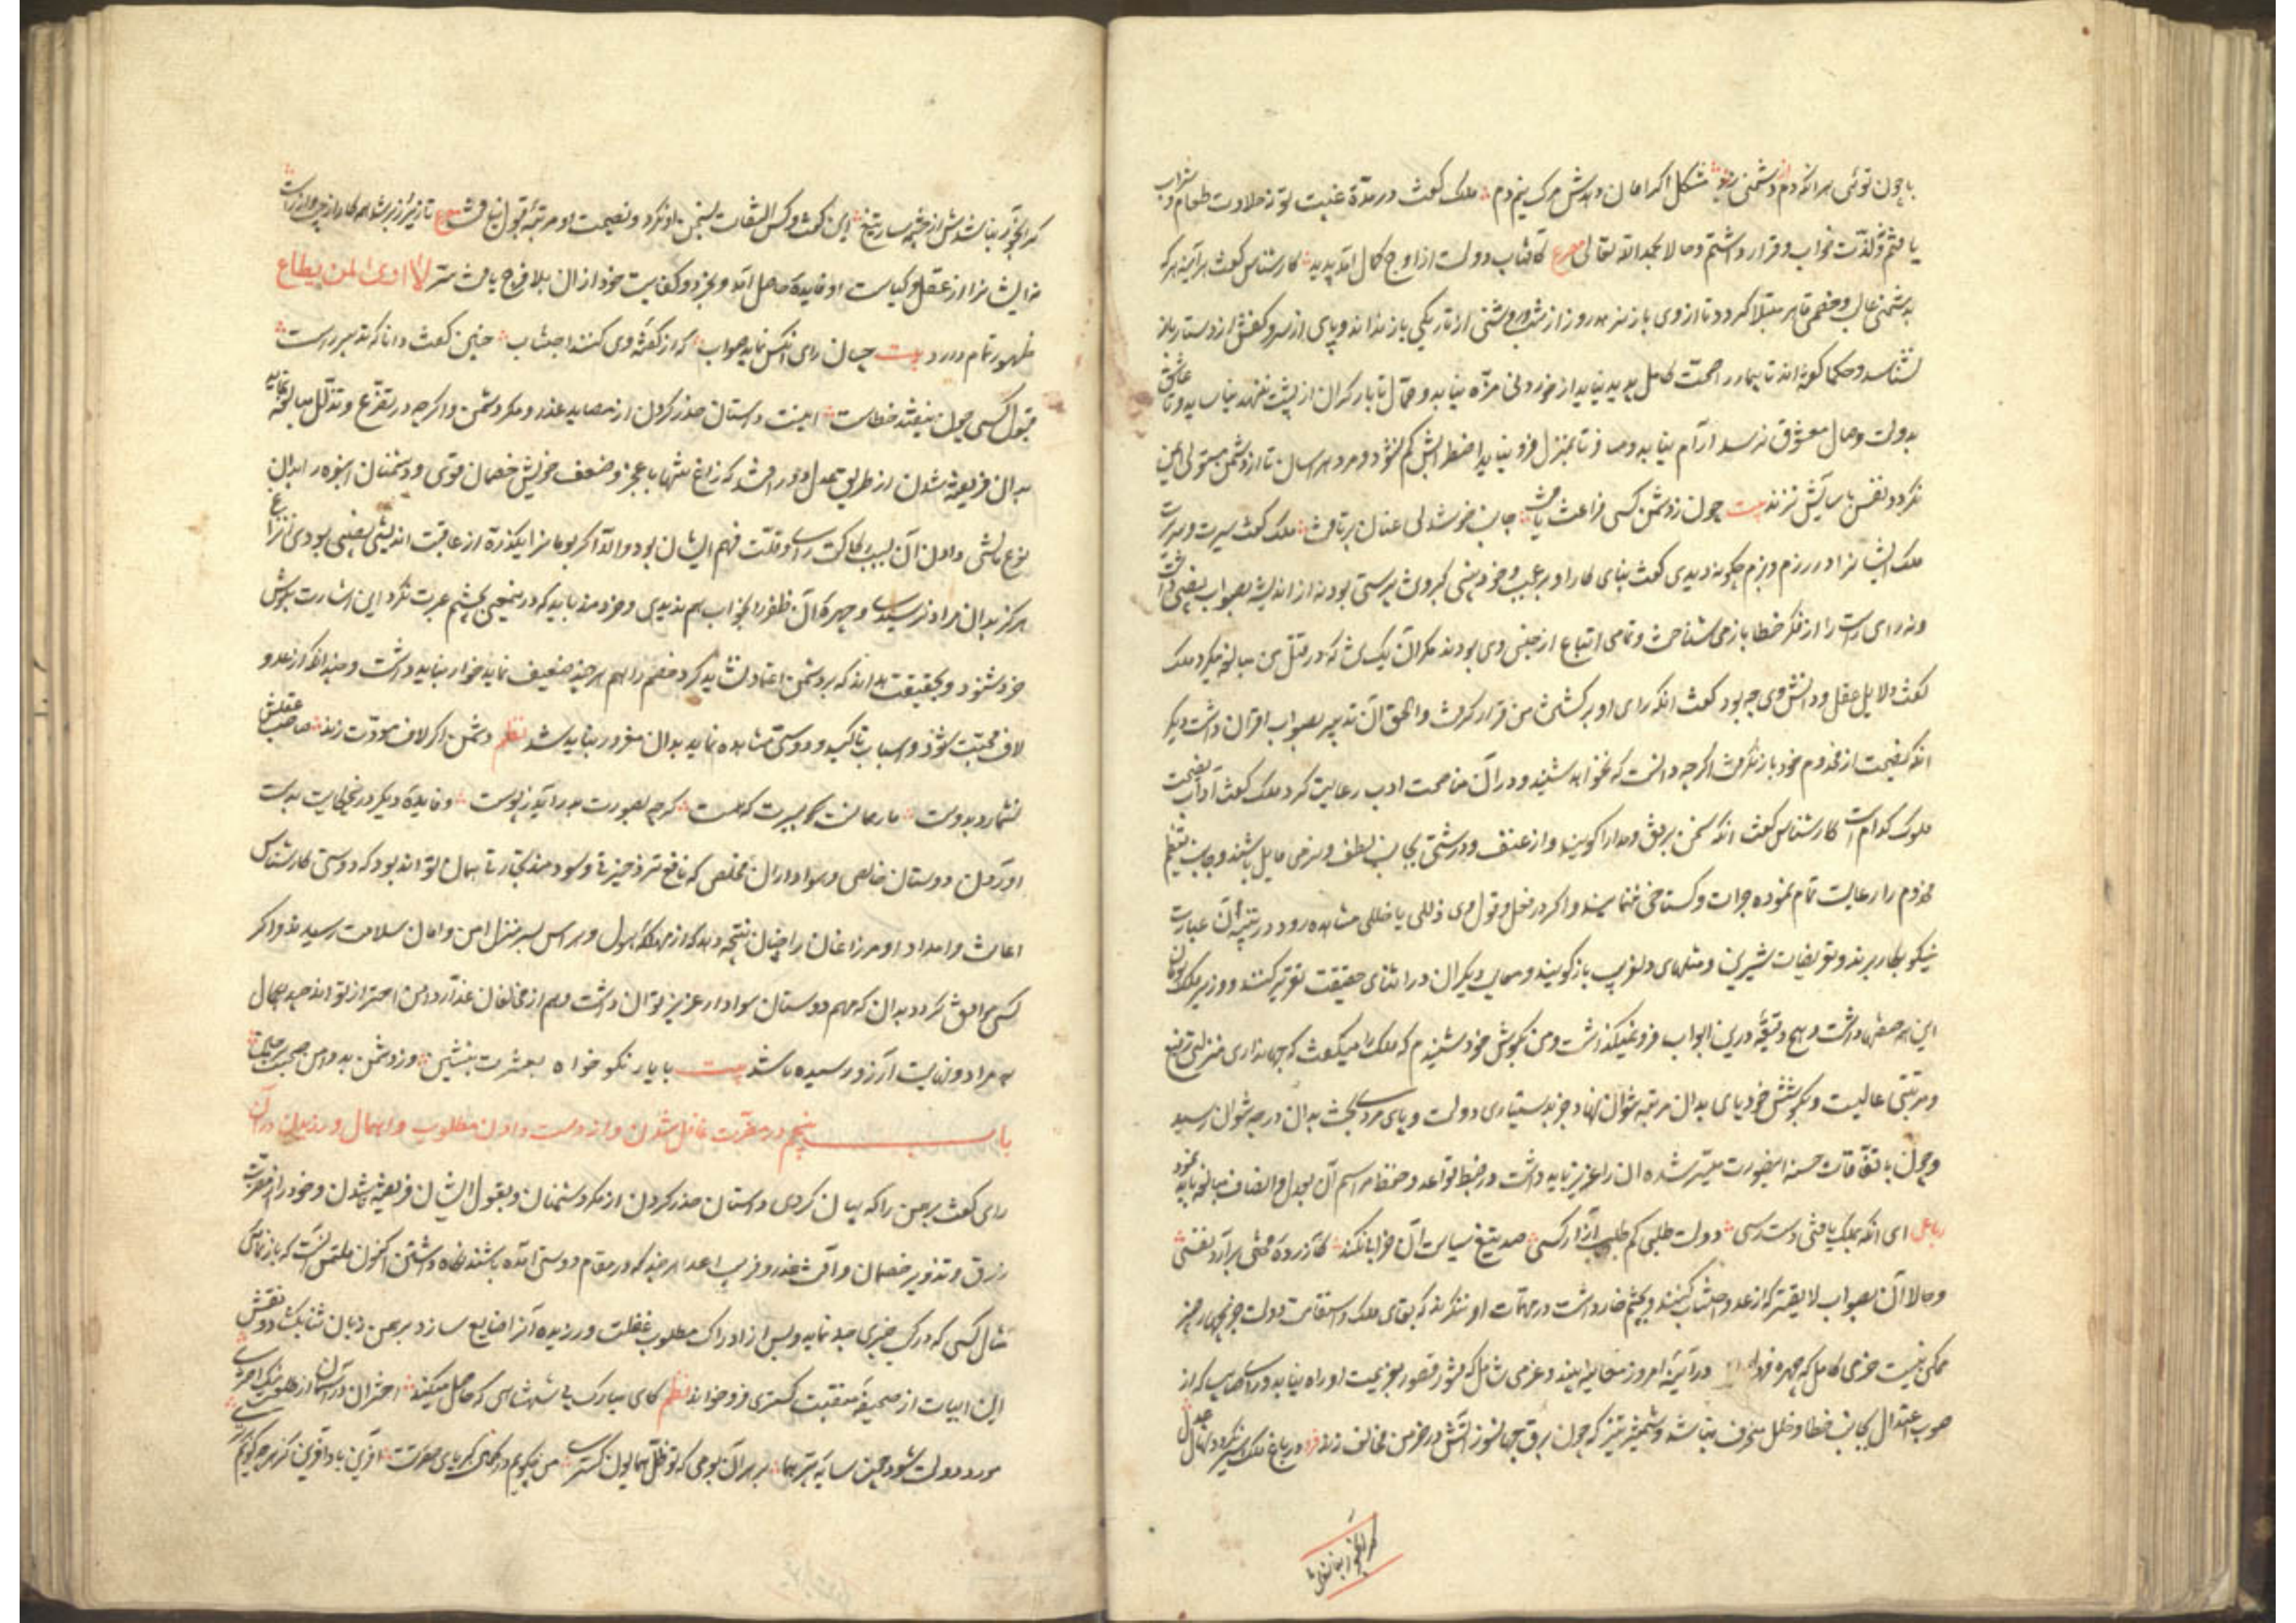 با چون توئی هر آنکه دم از دشمنی زند مشکل اگر امان دهدش مرگ نیم دم ملک گفت در مدة غیبت تو نه حلاوت طعام و شراب
یافتم و نه لذت خواب و قرار داشتم و حالا بحمد الله تعالی مصرع کآفتاب دولت از اوج کمال آمد پدید کارشناس گفت هر آینه هر که
بدشمنی غالب و خصمی قاهر مبتلا گردد تا از وی باز نرهد روز از شب و روشنی از تاریکی باز نداند و پای از سر و کفش از دستار باز
نشناسد و حکما گفته اند تا بیمار را صحت کامل پدید نیاید از خوردنی مزه نیابد و حمال تا بار گران از پشت ننهد نیاساید و عاشق تا
بدولت وصال معشوق نرسد آرام نیابد و مسافر تا بمنزل فرو نیاید اضطرابش کم نشود و مرد هراسان تا از دشمن مستولی ایمن
نگردد نفس بآسایش نزند بیت چون ز دشمن کسی فراغت یافت جانب خوشدلی عنان بر تافت ملک گفت سیرت و سریرت
ملک ایشانرا در رزم و بزم چگونه دیدی گفت بنای کار او بر عجب و خودبینی و کبر و پرستی بود نه از اندیشه بصواب نصیبی داشت
و نه رای راست را از فکر خطا باز می شناخت و تمامی اتباع از جنس وی بودند مگر آن یک که در قتل من مبالغه میکرد ملک
گفت دلایل عقل و دانش وی چه بود گفت آنکه رای او بر کشتن من قرار گرفت و الحق آن تدبیر بصواب اقتران داشت دیگر
آنکه نصیحت از مخدوم خود باز نگرفت اگرچه دانست که نخواهد شنید و در آن مناصحت ادب رعایت کرد ملک گفت آداب نصیحت
ملوک کدام است کارشناس گفت آنکه سخن برفق و مدارا گویند و از عنف و درشتی بجانب لطف و نرمی مایل باشند و جانب تعظیم
مخدوم را رعایت تمام نموده جرات و گستاخی ننمایند و اگر در فعل و قول وی زللی یا خللی مشاهده رود در تنبیه آن عبارت
نیکو بکار برند و تعریضات شیرین و مثلهای دلفریب باز گویند و معایب دیگران در اثنای حقیقت تقریر کنند و وزیر ملک بومان
این همه صفتها داشت و هیچ دقیقه درین ابواب فرو نمیگذاشت و من بگوش خود شنیدم که ملک را میگفت که جهانداری منزلتی رفیع
و مرتبتی عالیست و بکوشش خود پای بدان مرتبه نتوان نهاد و جز بدستیاری دولت و پای مردی بخت بدان درجه نتوان رسید
و چون باتفاقات حسنه اینصورت میسر شده آن را عزیز باید داشت و در ضبط قواعد و حفظ مراسم آن بعدل و انصاف مبالغه باید نمود
رباعی ای آنکه بملک یافتی دسترسی دولت طلبی کم طلب آزار کسی صد تیغ سیاست آن خرابی نکند کآزرده دلی برآرد نفسی
و حالا آن بصواب لایقتر که از غدر اجتناب کنند و بچشم خرد در مهمات او ننگرند که بقای ملک و استقامت دولت جز بچهار چیز
ممکن نیست حزمی کامل که چهره فردا در آیینه امروز معاینه بیند و عزمی شامل که فتور و قصور بعزیمت او راه نیابد و رای صایب که از
صوب اعتدال بجانب خطا و خلل منحرف نباشد و شمشیر تیز که چون برق جهانسوز آتش در خرمن مخالف زند فرد در باغ ملک سبز نگردد نهال عدل
گر آبخور نباشدش
گر آبخور نباشدش از چشمه سار تیغ این گفت و کس التفات بسخن او نکرد و نصیحت او مرتبه قبول نیافت مصرع تا زیر و زبر شد همه کار از چپ و راست
نه ایشانرا از عقل و کیاست او فایده حاصل آمد و نه خود بخرد و کفایت خود از آن بلا فرج یافت سر لا رأی لمن لا یطاع
ظهور تمام دارد بیت چسان رای آنکس نماید صواب که از گفته وی کنند اجتناب چنین گفت دانا که تدبیر راست
قبول کسی چون نیفتد خطاست اینست داستان حذر کردن از مصاید غدر و مکر دشمن و اگرچه در تضرع و تذلل مبالغه نماید
بدان فریفته شدن از طریق عقل دور باشد که زاغ تنها با عجز و ضعف خویش خصمان قوی و دشمنان انبوه را بدان
نوع مالشی داد و آن بسبب رکاکت رای و قلت فهم ایشان بود و الا اگر بومانرا یکذره از عاقبت اندیشی نصیبی بودی زاغ
هرگز بدان مراد نرسیدی و چهره آن ظفر را بخواب هم ندیدی و خردمند باید که در نیمعنی بچشم عبرت نگرد این اشارت بگوش
خرد شنود و بحقیقت بداند که بر دشمن اعتماد نشاید کرد و خصم را هم هر چند ضعیف نماید خوار نباید داشت و چندانکه از عدو
لاف محبت شنود و اسباب تاکید دوستی مشاهده نماید بدان مغرور نباید شد نظم دشمن اگر لاف مودت زند صاحب عقلش
نشمارد بدوست مار همانست بسیرت که هست گرچه بصورت بدر آید ز پوست و فایده دیگر درین حکایت بدست
آوردن دوستان خالص و هواداران مخلص که نافع تر ذخیره و سودمندتر تجارتها همان تواند بود که دوستی کارشناس
اعانت و امداد او مر زاغان را چنان نتیجه داد که از مهلکه هول و هراس بسر منزل امن و امان سلامت رسیدند و اگر
کسی موافق گردد بدان که هم دوستان هوادار عزیز توان داشت و هم از مخالفان غدار دامن احتراز تواند چید بکمال
مراد و نهایت آرزو رسیده باشد بیت با یار نکو خواه بعشرت بنشین وز دشمن بد دامن صحبت در چین
باب پنجم در مضرت غافل شدن و از دست دادن مطلوب و اهمال ورزیدن در آن
رای گفت برهمن را که بیان کردی داستان حذر کردن از مکر دشمنان و بقول ایشان فریفته ناشدن و خود را از مضرت
زرق و تزویر خصمان و آفت غدر و فریب اعدا هر چند که در مقام دوستی آمده باشند نگاه داشتن اکنون ملتمس آنست که باز نمای
مثال کسی که در کسب چیزی جد نماید و پس از ادراک مطلوب غفلت ورزیده آنرا ضایع سازد برهمن زبان ثنا بگشاد و نقش
این ابیات از صحیفه منقبت گستری فرو خواند نظم کای مبارک پی شهنشاهی که حاصل میکند اختران آسمان از طلعتت نیک اختری
مورد دولت شود چون سایه پر هما بر هر آن بومی که تو ظل همایون گستری من چگویم در کمال کبریای حضرتت آفرین باد آفرین کز هرچه گویم برتری